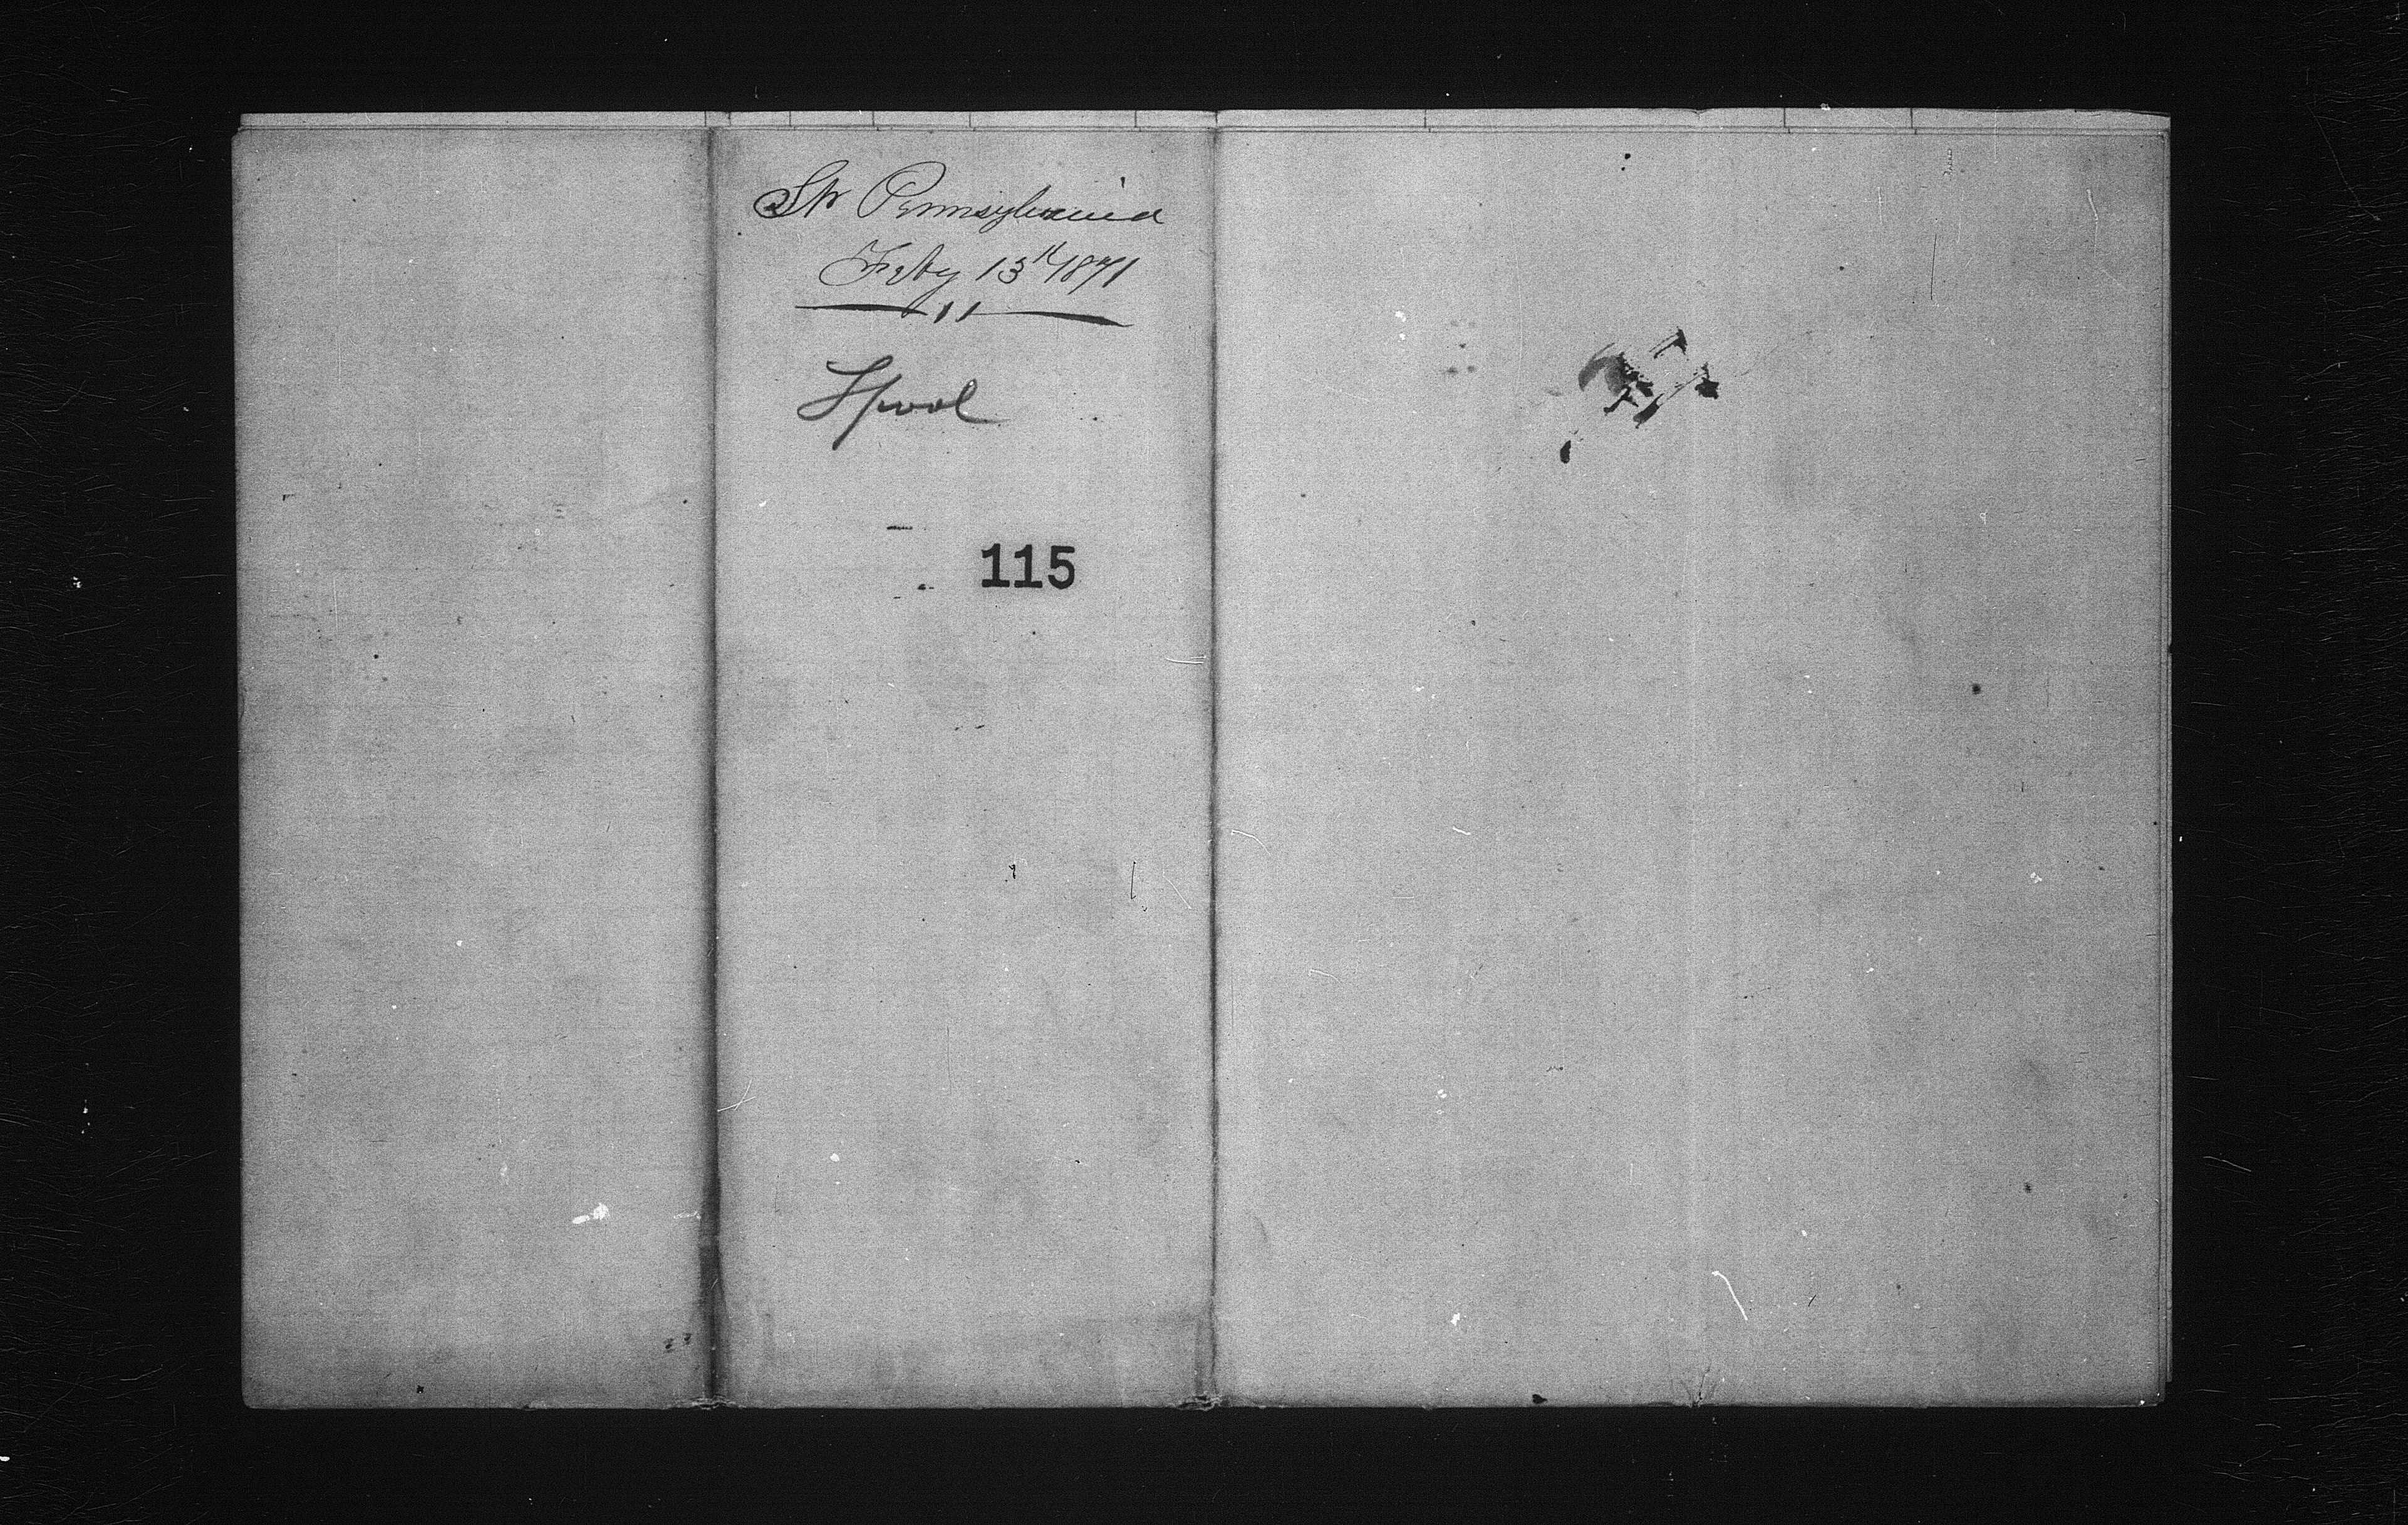 Str Pennsylvania
Feby 13th 1871
11
Lpool
115